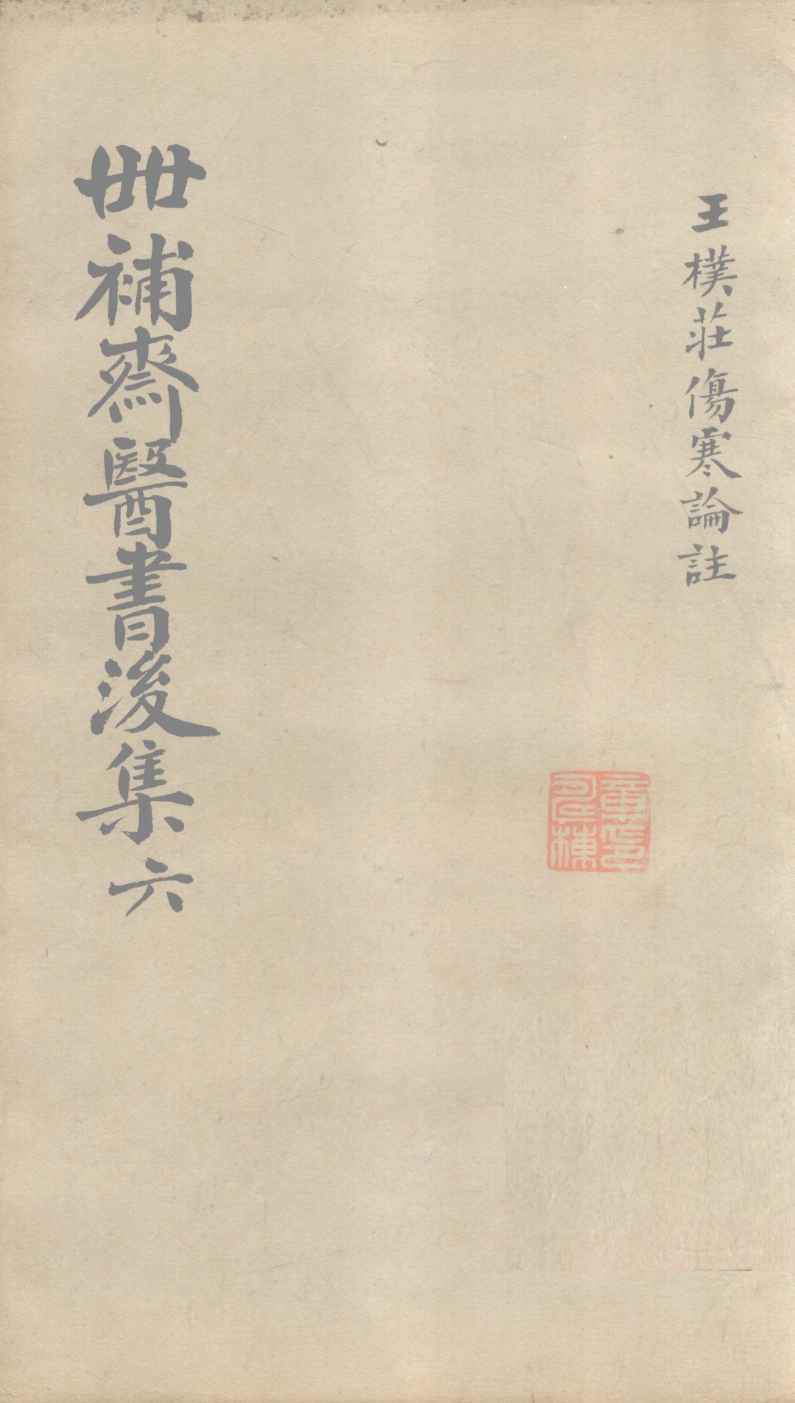 王樸莊傷寒論註
卌補齋醫書後集六